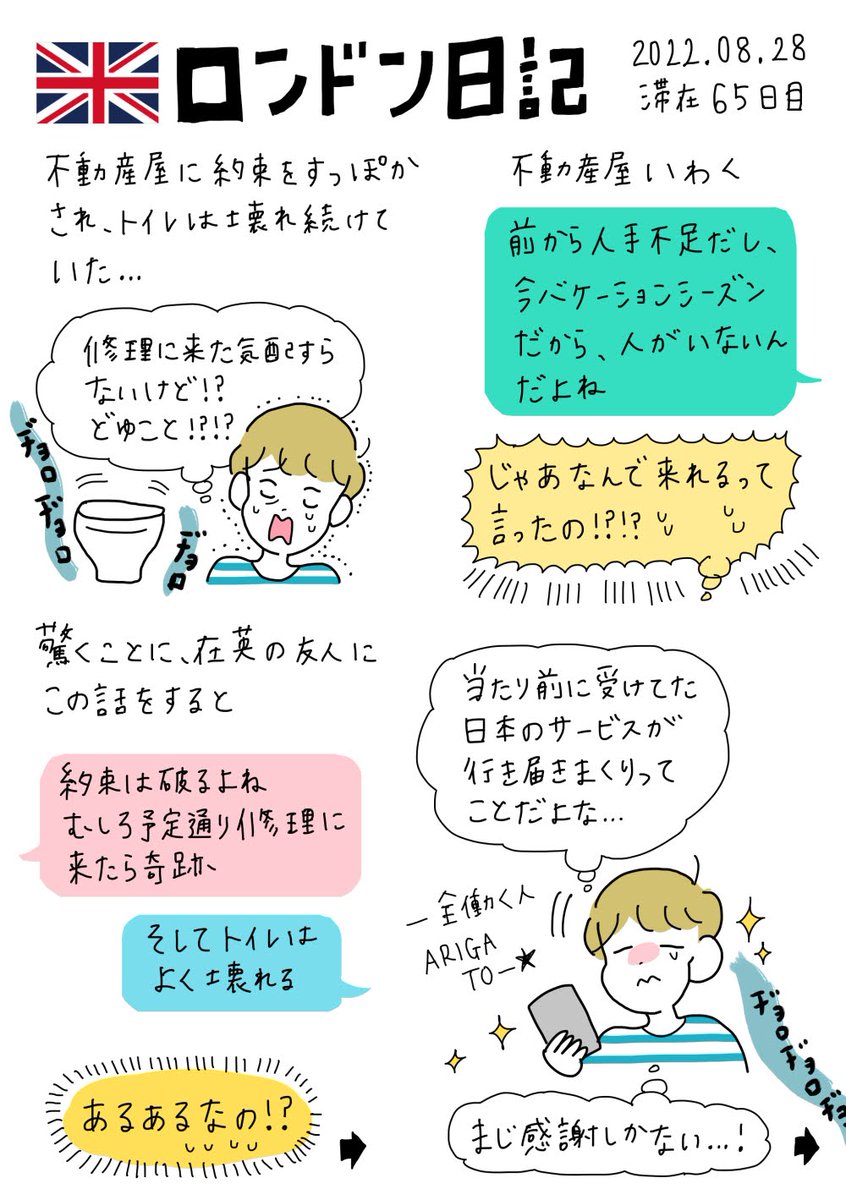 ロンドン日記
2022.08.28
滞在65日目
不動産屋に約束をすっぽか
され、トイレは壊れ続けて
いた…
修理に来た気配すら
ないけど!?
どゆこと!?!?
ヂョロ
ヂョロ
ヂョロ
驚くことに、在英の友人に
この話をすると
約束は破るよね
むしろ予定通り修理に
来たら奇跡、
そしてトイレは
よく壊れる
あるあるなの!?
不動産屋いわく
前から人手不足だし、
今バケーションシーズン
だから、人がいないん
だよね
じゃあなんで来れるって
言ったの!?!?
当たり前に受けてた
日本のサービスが
行き届きまくりって
ことだよな…
全働く人
ARIGA
TO―★
ヂョロ
ヂョロ
ヂョ
まじ感謝しかない…!